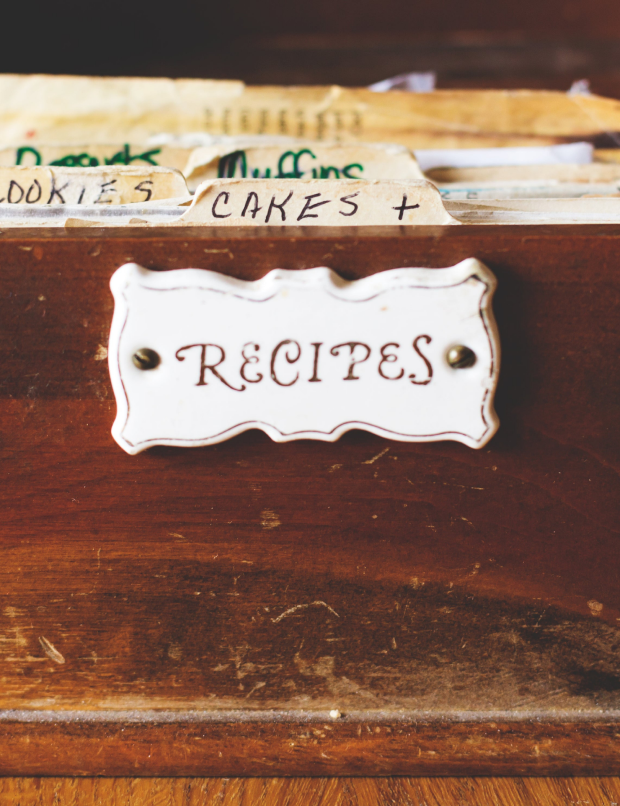 Desserts
Muffins
COOKIES
CAKES +
RECIPES